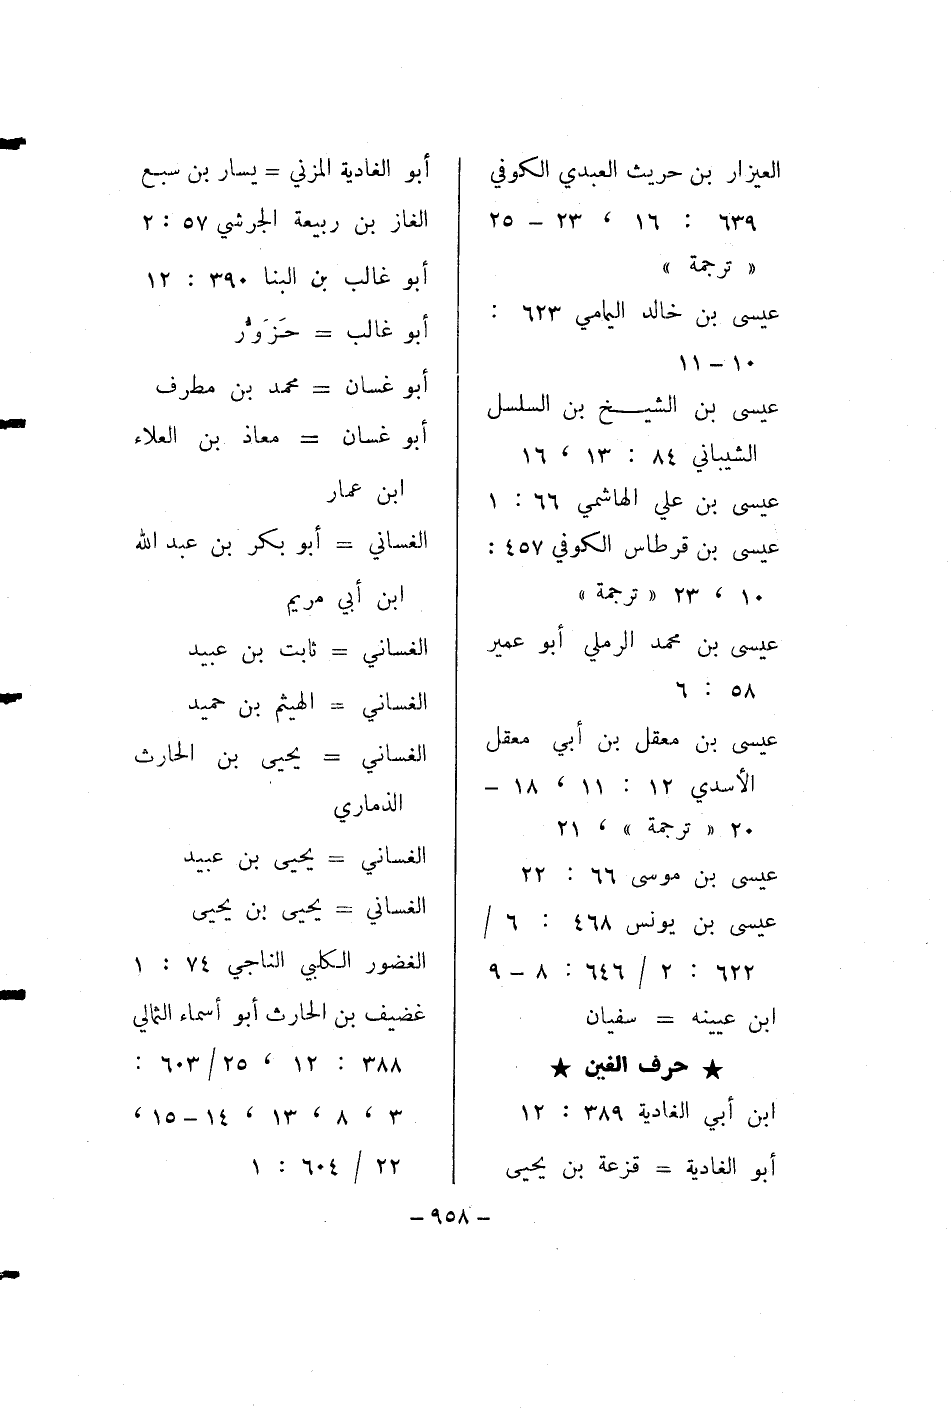 العيزار بن حريث العبدي الكوفي
٦٣٩ : ١٦ ، ٢٣ – ٢٥
« ترجمة »
عيسى بن خالد اليامي ٦٢٣ :
١٠ – ١١
عيسى بن الشيخ بن السلسل
الشيباني ٨٤ : ١٣ ، ١٦
عيسى بن علي الهاشمي ٦٦ : ١
عيسى بن قرطاس الكوفي ٤٥٧ :
١٠ ، ٢٣ « ترجمة »
عيسى بن محمد الرملي أبو عمير
٥٨ : ٦
عيسى بن معقل بن أبي معقل
الأسدي ١٢ : ١١ ، ١٨ –
٢٠ « ترجمة » ، ٢١
عيسى بن موسى ٦٦ : ٢٢
عيسى بن يونس ٤٦٨ : ٦ /
٦٢٢ : ٢ / ٦٤٦ : ٨ – ٩
ابن عيينه = سفيان
★ حرف الغين ★
ابن أبي الغادية ٣٨٩ : ١٢
أبو الغادية = قزعة بن يحيى
أبو الغادية المزني = يسار بن سبع
الغاز بن ربيعة الجرشي ٥٧ : ٢
أبو غالب بن البنا ٣٩٠ : ١٢
أبو غالب = حَزَوَّر
أبو غسان = محمد بن مطرف
أبو غسان = معاذ بن العلاء
ابن عمار
الغساني = أبو بكر بن عبد الله
ابن أبي مريم
الغساني = ثابت بن عبيد
الغساني = الهيثم بن حميد
الغساني = يحيى بن الحارث
الذماري
الغساني = يحيى بن عبيد
الغساني = يحيى بن يحيى
الغضور الكلبي الناجي ٧٤ : ١
غضيف بن الحارث أبو أسماء الثمالي
٣٨٨ : ١٢ ، ٢٥ / ٦٠٣ :
٣ ، ٨ ، ١٣ ، ١٤ – ١٥ ،
٢٢ / ٦٠٤ : ١
– ٩٥٨ –